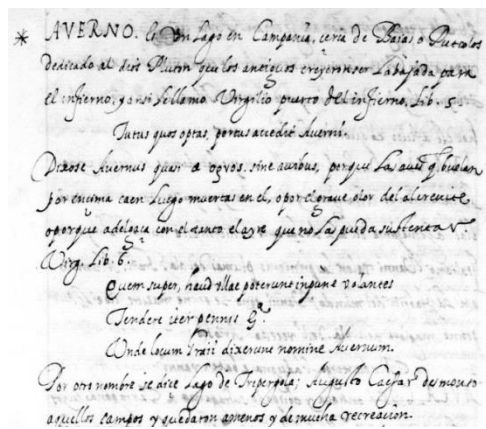 * AVERNO. Es Un Lago en Campania, cerca de Baias o Puteolos
dedicado al dios Pluton que los antiguos creyeron ser La bajada para
el infierno, y ansi le llamo Virgilio puerto del infierno, Lib. 5.
Tutus quos optas, portus accedit Averni.
Dixose Avernus quasi a ορνος, sine avibus, porque Las aves q. buelan
por encima caen Luego muertas en el, o por el grave olor del alcrevite
o porque adelgaza con el tanto el ayre que no Las pueda sustentar.
Virg. Lib. 6.
Quem super, haud ullae poterunt inpune volantes
Tendere iter pennis &ª.
Unde locum Graii dixerunt nomine Avernum.
Por otro nombre se dize Lago de Tripergola; Augusto Caesar desmonto
aquellos campos y quedaron amenos y de mucha recreacion.